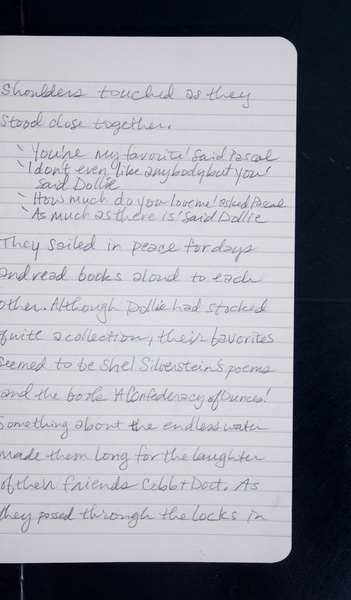 Shoulders touched as they
stood close together.
` You're my favorite' said Pascal
` I don't even like anybody but you'
said Dollie
` How much do you love me' asked Pascal
` As much as there is' said Dollie
They sailed in peace for days
and read books aloud to each
other. Although Dollie had stocked
quite a collection, their favorites
seemed to be Shel Silverstein's poems
and the book 'A Confederacy of Dunces.'
Something about the endless water
made them long for the laughter
of their friends Cobb + Doct. As
they passed through the locks in